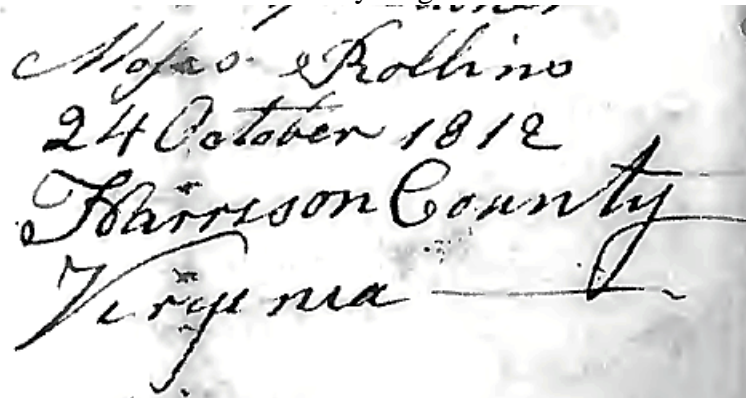 Moses Rollins
24 October 1812
Harrison County
Virginia